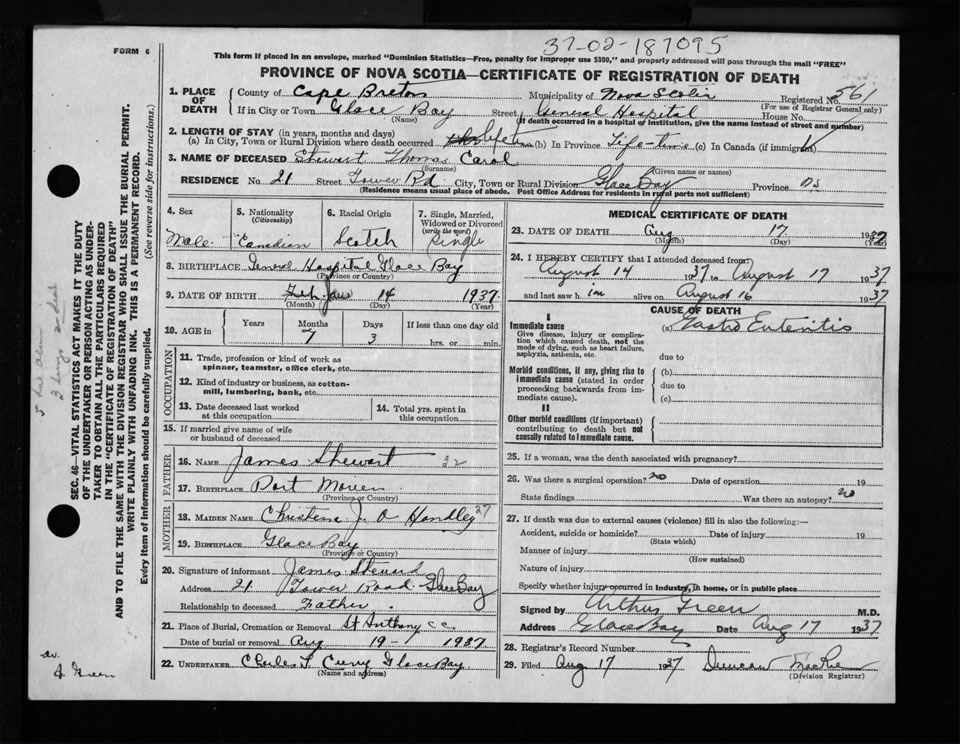 37-02-187095
FORM 6
This form if placed in an envelope, marked "Dominion Statistics—Free, penalty for improper use $300," and properly addressed will pass through the mail "FREE"
PROVINCE OF NOVA SCOTIA—CERTIFICATE OF REGISTRATION OF DEATH
1. PLACE OF DEATH
County of Cape Breton Municipality of Nova Scotia Registered No. 561
(For use of Registrar General only)
If in City or Town Glace Bay Street General Hospital House No.
(Name) (If death occurred in a hospital of institution, give the name instead of street and number)
2. LENGTH OF STAY (in years, months and days)
(a) In City, Town or Rural Division where death occurred (b) In Province Life-time (c) In Canada (if immigrant)
3. NAME OF DECEASED Stewart Thomas Carol
(Surname) (Given name or names)
RESIDENCE No. 21 Street Tower Rd City, Town or Rural Division Glace Bay Province NS
(Residence means usual place of abode. Post Office Address for residents in rural parts not sufficient)
4. Sex
Male
5. Nationality
(Citizenship)
Canadian
6. Racial Origin
Scotch
7. Single, Married, Widowed or Divorced
(write the word)
Single
8. BIRTHPLACE General Hospital Glace Bay
(Province or Country)
9. DATE OF BIRTH Jan 14 1937
(Month) (Day) (Year)
10. AGE in
Years Months Days If less than one day old
7 3 hrs. or min.
OCCUPATION
11. Trade, profession or kind of work as
spinner, teamster, office clerk, etc.
12. Kind of industry or business, as cotton-
mill, lumbering, bank, etc.
13. Date deceased last worked
at this occupation
14. Total yrs. spent in
this occupation
15. If married give name of wife
or husband of deceased
FATHER
16. NAME James Stewart 32
17. BIRTHPLACE Port Morien
(Province or Country)
MOTHER
18. MAIDEN NAME Christena J. A Handley 27
19. BIRTHPLACE Glace Bay
(Province or Country)
20. Signature of informant James Stewart
Address 21 Tower Road Glace Bay
Relationship to deceased Father
21. Place of Burial, Cremation or Removal St Anthony C.C.
Date of burial or removal Aug 19- 1937
22. UNDERTAKER Charles F. Curry Glace Bay
(Name and address)
MEDICAL CERTIFICATE OF DEATH
23. DATE OF DEATH Aug 17 1937
(Month) (Day) (Year)
24. I HEREBY CERTIFY that I attended deceased from:
August 14 1937 to August 17 1937
and last saw him alive on August 16 1937
CAUSE OF DEATH
I
Immediate cause (a) Gastro Enteritis
Give disease, injury or complica-
tion which caused death, not the
mode of dying, such as heart failure,
asphyxia, asthenia, etc.
due to
Morbid conditions, if any, giving rise to
immediate cause (stated in order
proceeding backwards from im-
mediate cause).
(b)
due to
(c)
II
Other morbid conditions (if important)
contributing to death but not
causally related to immediate cause.
25. If a woman, was the death associated with pregnancy?
26. Was there a surgical operation? no Date of operation 19
State findings Was there an autopsy? no
27. If death was due to external causes (violence) fill in also the following:—
Accident, suicide or homicide? Date of injury 19
(State which)
Manner of injury
(How sustained)
Nature of injury
Specify whether injury occurred in industry, in home, or in public place
Signed by Arthur Green M.D.
Address Glace Bay Date Aug 17 1937
28. Registrar's Record Number
29. Filed Aug 17 1937 Duncan MacRae
(Division Registrar)
SEC. 46—VITAL STATISTICS ACT MAKES IT THE DUTY
OF THE UNDERTAKER OR PERSON ACTING AS UNDER-
TAKER TO OBTAIN ALL THE PARTICULARS REQUIRED
IN THE "CERTIFICATE OF REGISTRATION OF DEATH"
AND TO FILE THE SAME WITH THE DIVISION REGISTRAR WHO SHALL ISSUE THE BURIAL PERMIT.
WRITE PLAINLY WITH UNFADING INK. THIS IS A PERMANENT RECORD.
Every item of information should be carefully supplied. (See reverse side for instructions.)
Dr.
A. Green